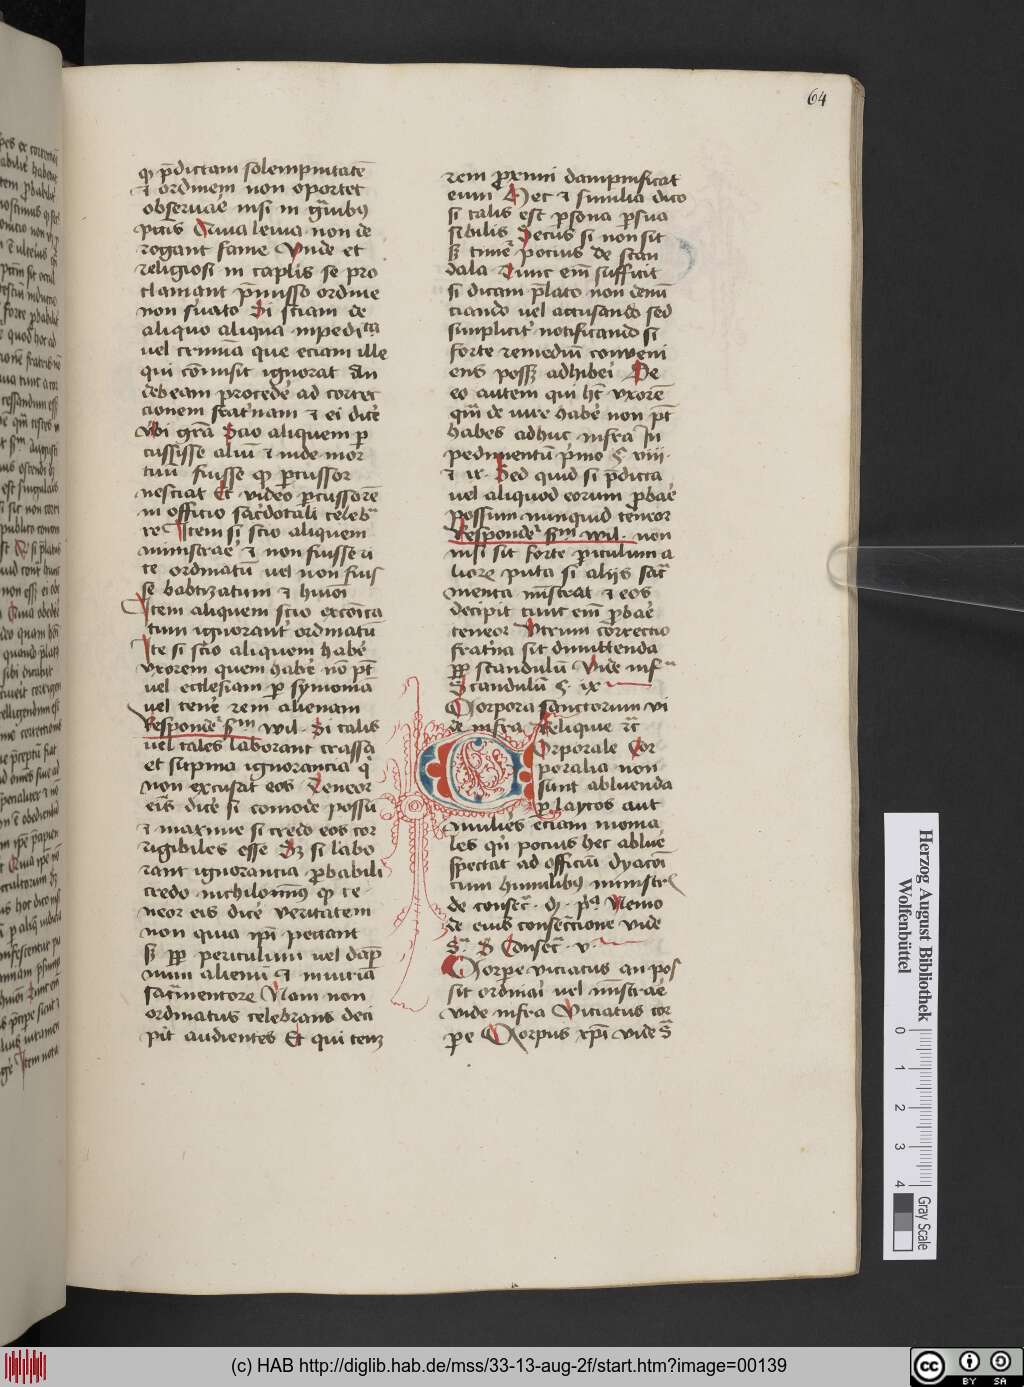 64
q̛ p̄dictam solempnitatē
⁊ ordinem non oportet
obseruare nisi in g̃uibꝰ
pctīs Quia leuia non de
rogant fame Vnde et
religiosi in caplīs se pro
clamant p̄misso ordine
non seruato Si sciam de
aliquo aliqua impedita
uel crimina que eciam ille
qui cōmisit ignorat An
debeam procedē ad correc
cionem frat̄nam ⁊ ei dicē
Vbi grā Scio aliquem ꝑ
cussisse aliū ⁊ inde mor
tuū fuisse q̛ ꝑcussor
nesciat Et video ꝑcussorē
in officio sac̄dotali celebra
re Item si scio aliquem
ministrare ⁊ non fuisse ri
te ordinatū uel non fuis
se babtizatum ⁊ hmōi
Item aliquem scio excōica
tum ignorant̄ ordinatū
Itē si scio aliquem habē
vxorem quem habē nō pt̄
uel ecclesiam ꝑ symoniā
uel tenē rem alienam
Respondet̄ sm̄ wil · Si talis
uel tales laborant crassa
et supina ignorancia q̄
non excusat eos Teneor
eis dicē si comode possū
⁊ maxime si credo eos cor
rigibiles esse Sꝫ si labo
rant ignorancia ꝓbabili
credo nichilominꝰ q̛ te
neor eis dicē veritatem
non quia ip̄i peccant
sꝫ ꝓꝑ periculum uel dāp
num alienū ⁊ iniuriā
sacramentorum Nam non
ordinatus celebrans deci
pit audientes Et qui tenꝫ
rem ꝓximi dampnificat
eum Hec ⁊ similia dico
si talis est ꝑsona ꝑsua
sibilis Secus si non sit
sꝫ timet̄ pocius de scan
dala Tunc enī sufficit
si dicam p̄lato non denū
ciando uel accusando sed
simplicit̄ notificando si
forte remediū conueni
ens possꝫ adhiberi De
eo autem qui ht̄ vxorē
quā de iure habē non pt̄
habes adhuc infra Im
pedimentū p̄mo § viii ·
⁊ ix · Sed quid si p̄dicta
uel aliquod eorum ꝓbarē
possum nunquid teneor
Respondet̄ sm̄ wil · non
nisi sit forte ꝑiculum a
liorum puta si alijs sac̄
menta mīstrat ⁊ eos
decipit tunc enī ꝓbarē
teneor Vtrum correctio
frat̄na sit dimittenda
ꝓꝑ scandalū Vide infra
Scandalū § · ix
Corpora sanctorum vi
de infra Relique rc̄
Corporale Cor
poralia non
sunt abluenda
ꝑ laycos aut
mulieres eciam monia
les qn̄ pocius hec abluē
spectat ad officiū dyaco
rum humilibꝰ ministris
de consec̄ · di · pa Nemo
de eius consec̄cione vide
s̄ · B Consec̄ · v
Corpore viciatus an pos
sit ordinari uel mīstrare
vide infra Viciatus cor
pe Corpus xpī vide s̄
Herzog August Bibliothek
Wolfenbüttel
0 1 2 3 4
Gray Scale
(c) HAB http://diglib.hab.de/mss/33-13-aug-2f/start.htm?image=00139
cc BY SA